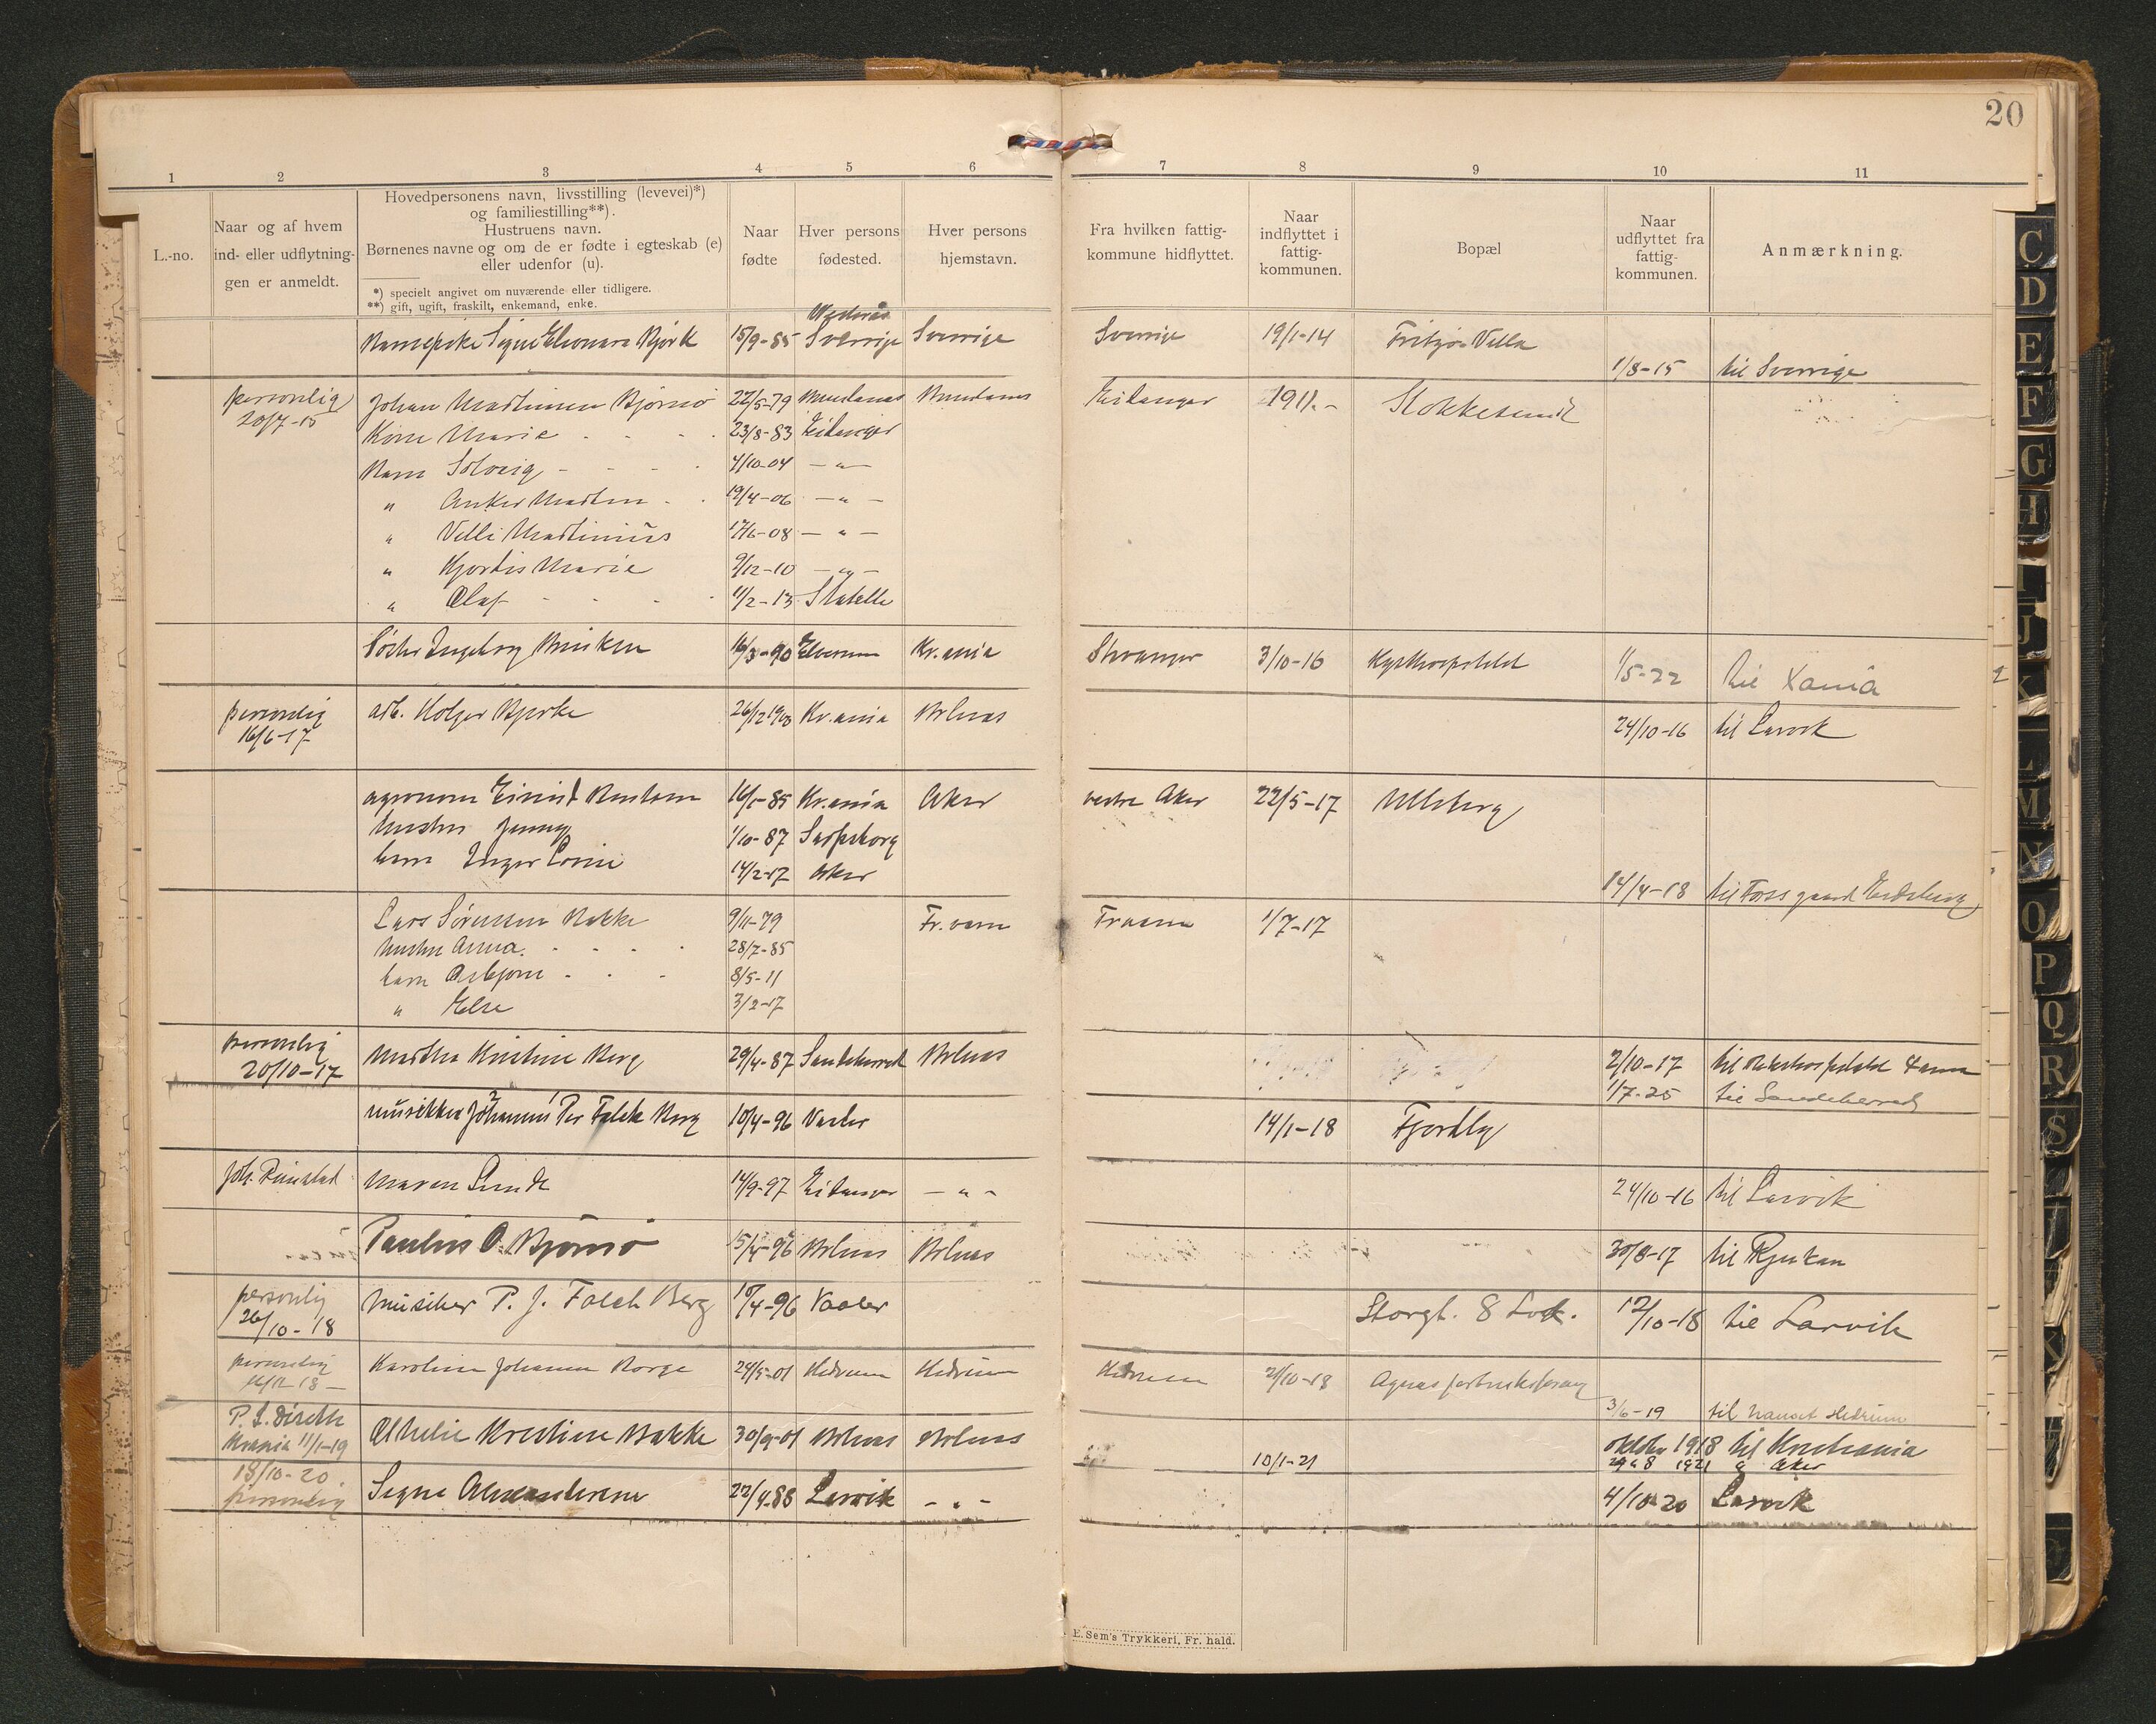 20
1 2 3 4 5 6 7 8 9 10 11
L.-no.
Naar og af hvem
ind- eller udflytnin-
gen er anmeldt.
Hovedpersonens navn, livsstilling (levevei)*)
og familiestilling**).
Hustruens navn.
Børnenes navne og om de er fødte i egteskab (e)
eller udenfor (u).
*) specielt angivet om nuværende eller tidligere.
**) gift, ugift, fraskilt, enkemand, enke.
Naar
fødte
Hver persons
fødested.
Hver persons
hjemstavn.
Fra hvilken fattig-
kommune hidflyttet.
Naar
indflyttet i
fattig-
kommunen.
Bopæl
Naar
udflyttet fra
fattig-
kommunen.
Anmærkning.
Signe Eleonora Björk 15/9-85 Sverrige Sverrige Sverrige 19/1-14 Fritzøe Villa
1/8-15 til Sverrige
personlig Johan Martinsen Bjørnø 22/5-79 Eidanger 1911.- Stokkesund
20/7-15
Kone Marie 23/8-83 Eidanger
Barn Solveig 4/10-04 — " —
" Anker Martin 19/4-06 — " —
" Villi Martinius 17/6-08 — " —
" Hjordis Marie 9/12-10 — " —
" Olaf 11/2-13 Stathelle
Søster Ingeborg 16/3-90 Elverum Kr.ania Stavanger 3/10-16 Kysthospitalet 1/5-22 til Xania
personlig arb. Holger Bjerke 26/12 1903 Kr.ania Brlnes 24/10-16 til Larvik
16/6-17
agronom Eivind 16/5-85 Kr.ania Aker vestre Aker 22/5-17
hustru Jenny 1/10-87 Sarpsborg
barn Inger Lovise 14/2-17 Aker
14/4-18 til Foss gaard Eidsberg
Lars Sørensen Bakke 9/11-79 Fr.værn 1/7-17
hustru Anna 28/7-85
barn Asbjørn 8/5-11
" Else 3/2-17
personlig Martha Kristine Berg 29/4-87 Sandeherred Brlnes 2/10-17 til
20/10-17 1/7-25 til Sandeherred
musikker Johannes Per Falck Berg 10/4-96 Vaaler 14/1-18 Fjordby
Joh. Rimstad Maren Lunde 14/9-97 Eidanger — " — 24/10-16 til Larvik
Paulus O. Bjørnø 15/4-96 Brlnes Brlnes 30/8-17 til Rjukan
personlig Musiker P. J. Falch Berg 10/4-96 Vaaler Storgt. 8 12/10-18 til Larvik
26/10-18
personlig Karoline Johanne Borge 24/5-01 Hedrum Hedrum Hedrum 2/10-18
3/6-19 til Nanset Hedrum
11/1-19 Kristine Bakke 30/9-01 Brlnes Brlnes oktober 1918 til Kristiania
10/1-21 1921 Aker
18/10-20 Signe 22/4-88 Larvik — " — 4/10-20 Larvik
personlig
E. Sem's Trykkeri, Fr. hald.
C
D
E
F
G
H
I
J
K
L
M
N
O
P
Q
R
S